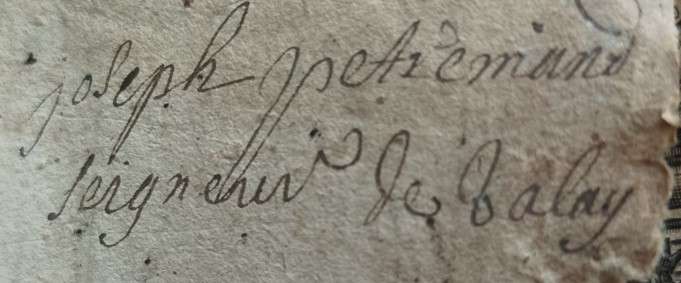 joseph petremand
seigneur de Valay